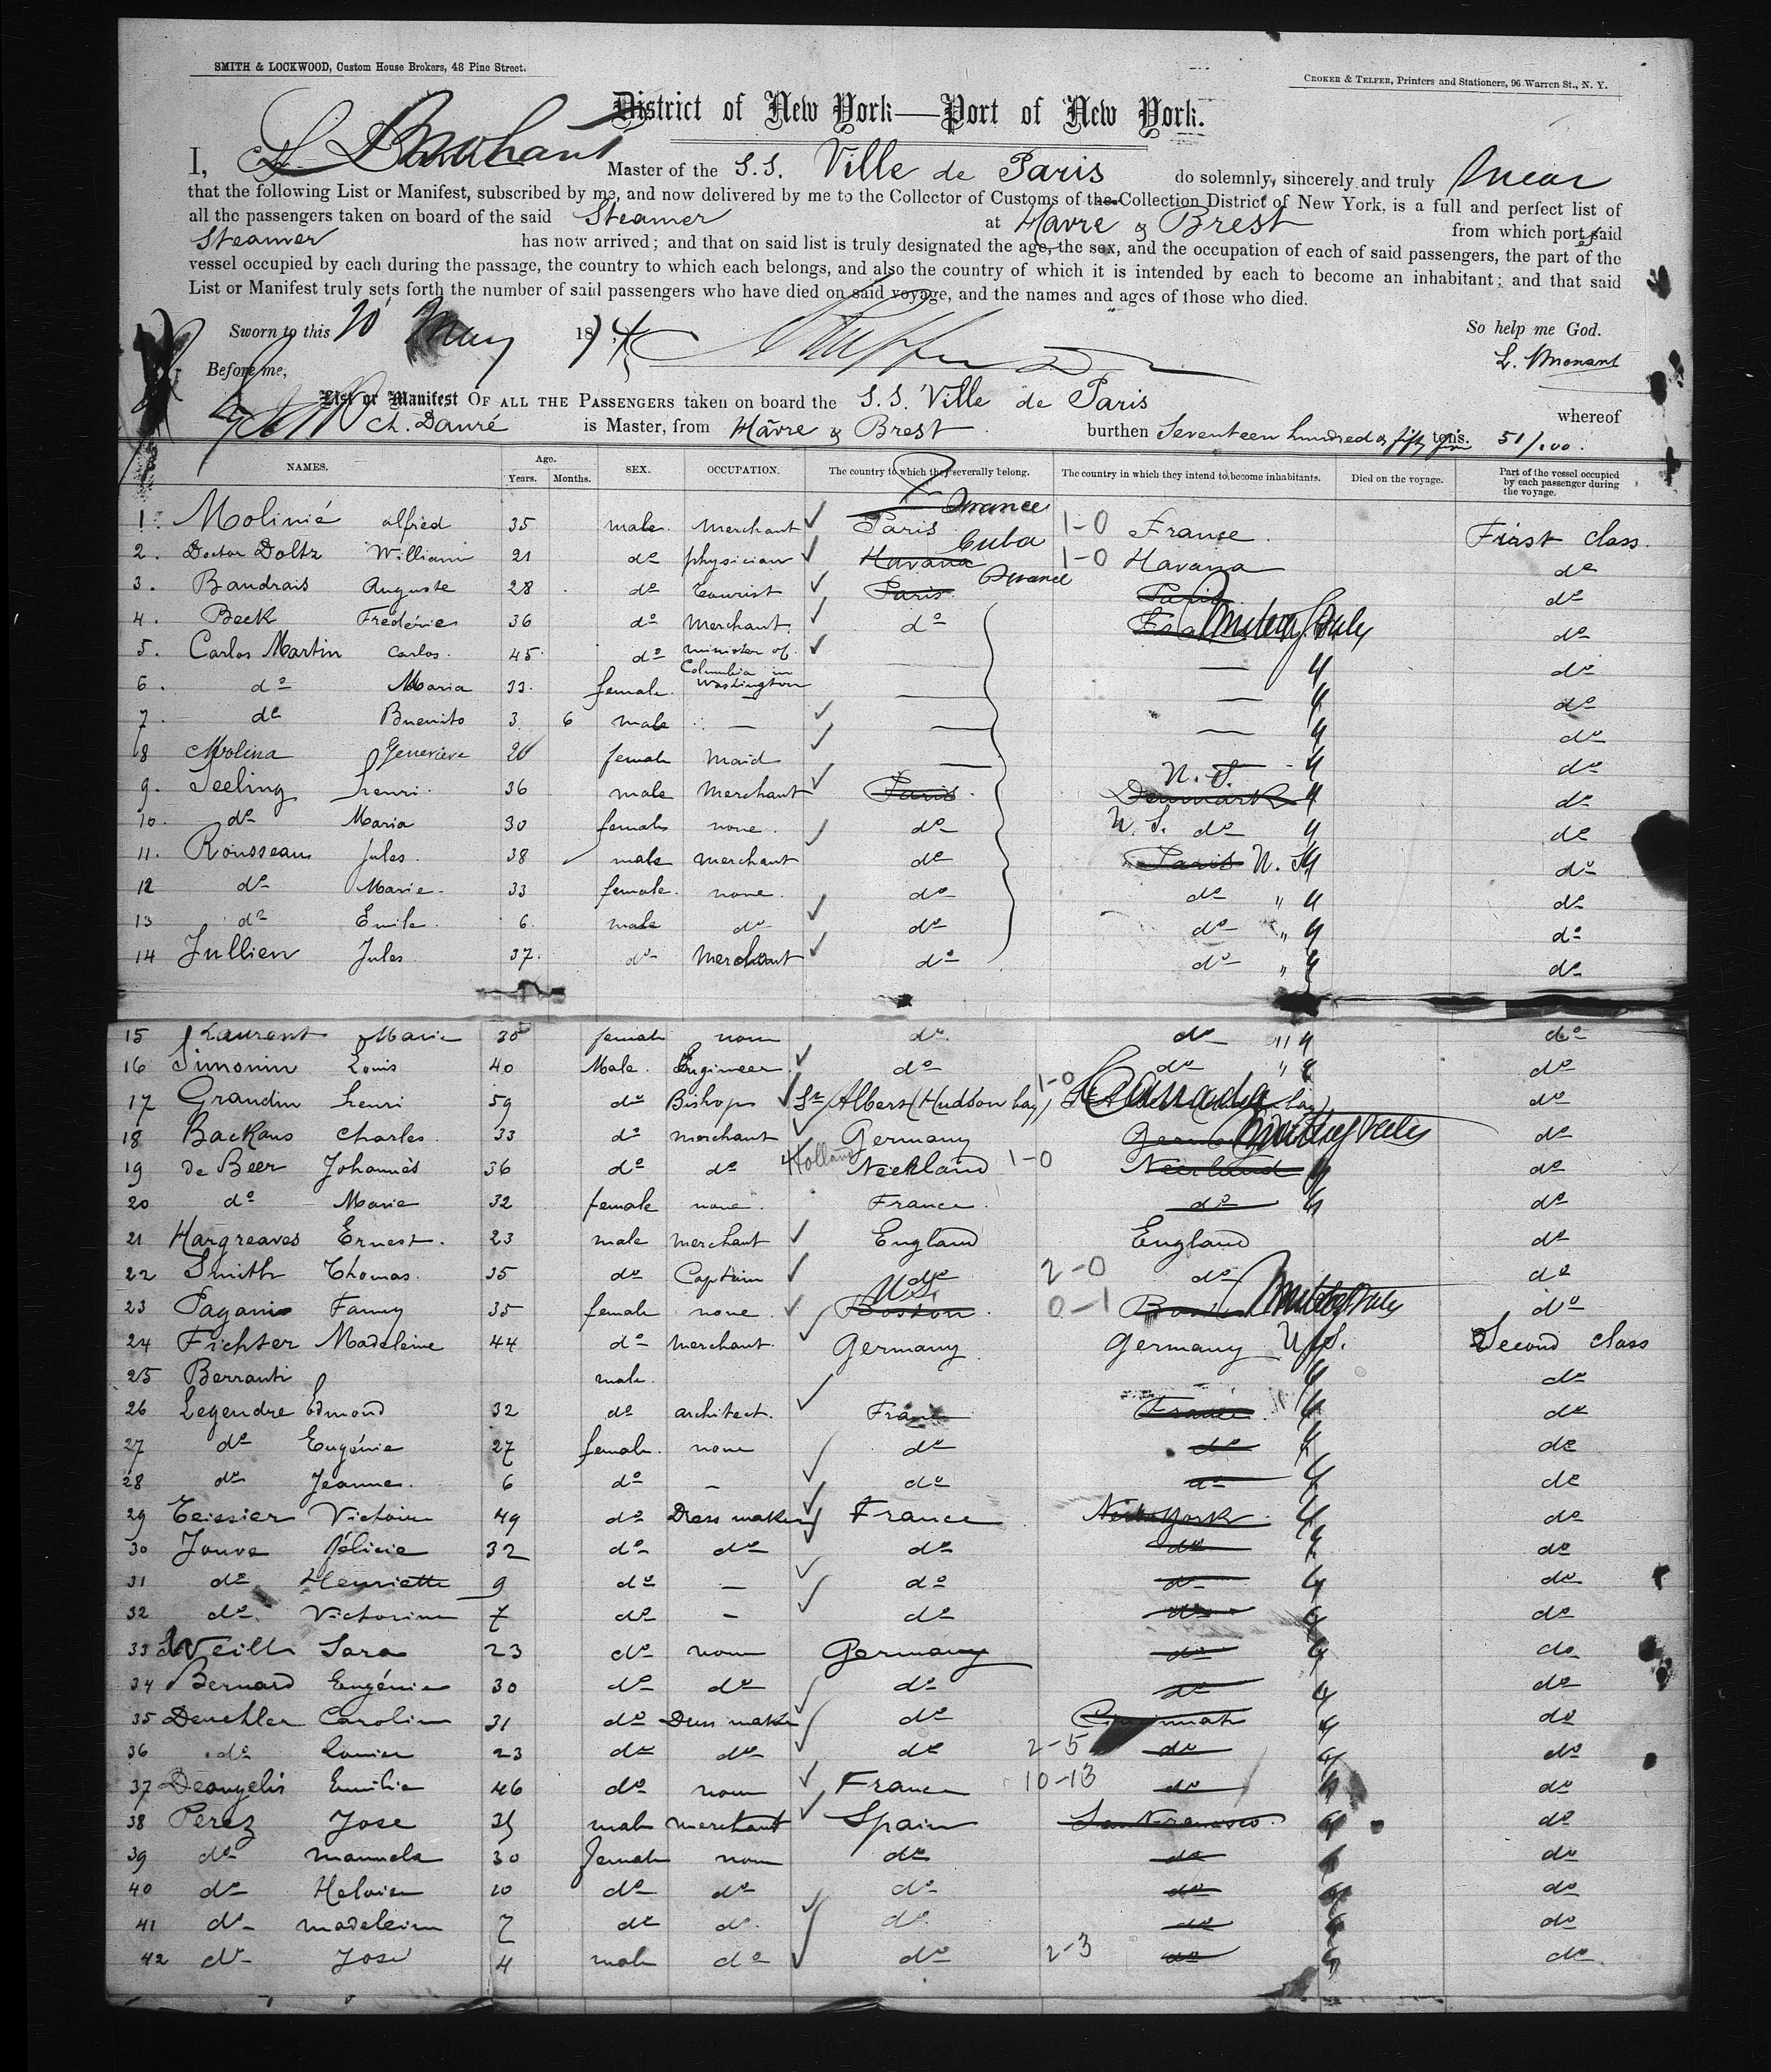 SMITH & LOCKWOOD, Custom House Brokers, 48 Pine Street.
CROKER & TELFER, Printers and Stationers, 96 Warren St., N. Y.
District of New York—Port of New York.
I, Master of the S.S. Ville de Paris do solemnly, sincerely and truly swear
that the following List or Manifest, subscribed by me, and now delivered by me to the Collector of Customs of the Collection District of New York, is a full and perfect list of
all the passengers taken on board of the said Steamer at Havre & Brest from which port said
Steamer has now arrived; and that on said list is truly designated the age, the sex, and the occupation of each of said passengers, the part of the
vessel occupied by each during the passage, the country to which each belongs, and also the country of which it is intended by each to become an inhabitant; and that said
List or Manifest truly sets forth the number of said passengers who have died on said voyage, and the names and ages of those who died.
Sworn to this 20 May 1874 So help me God.
Before me,
List or Manifest OF ALL THE PASSENGERS taken on board the S.S. Ville de Paris whereof
Ch. Dauré is Master, from Hâvre & Brest burthen Seventeen hundred & fifty five tons. 51/100.
NAMES. Age. Years. Months. SEX. OCCUPATION. The country to which they severally belong. The country in which they intend to become inhabitants. Died on the voyage. Part of the vessel occupied by each passenger during the voyage.
1. Molinié Alfred 35 male Merchant Paris France 1-0 France First class.
2. Doctor Doltz William 21 do physician Havana Cuba 1-0 Havana do
3. Baudrais Auguste 28 do tourist Paris France Paris do
4. Beck Frédéric 36 do Merchant do do
5. Carlos Martin Carlos 45 do minister of Columbia in Washington — — " do
6. do Maria 33 female — — " do
7. do Buenito 3 6 male — — — " do
8 Molina Geneviève 20 female Maid — — " do
9. Seeling henri 36 male Merchant Paris Denmark " do
10. do Maria 30 female none do U. S. do " do
11. Rousseau Jules 38 male merchant do Paris do
12 do Marie 33 female none do do " do
13 do Emile 6 male do do do " do
14 Jullien Jules 37 do Merchant do do " do
15 Laurent Marie 30 female none do do " do
16 Simonin Louis 40 Male Engineer do do " do
17 Grandin henri 59 do Bishop St Albert (Hudson bay) 1-0 Canada do
18 Backaus Charles 33 do merchant Germany do
19 de Beer Johannès 36 do do Holland Neerland 1-0 Neerland " do
20 do Marie 32 female none France do " do
21 Hargreaves Ernest 23 male merchant England England do
22 Smith Thomas 35 do Captain do 2-0 do do
23 Fanny 35 female none U.S. Boston 0-1 do
24 Fichter Madeleine 44 do merchant Germany Germany U.S. Second class
25 Berranti male " do
26 Legendre Edmond 32 do architect France France " do
27 do Eugénie 27 female none do do " do
28 do Jeanne 6 do - do do " do
29 Teissier Victoire 49 do Dress maker France New York " do
30 Jouve Félicie 32 do do do do " do
31 do Henriette 9 do — do do " do
32 do Victorine 7 do - do do " do
33 Weill Sara 23 do none Germany do " do
34 Bernard Eugénie 30 do do do do " do
35 Deuchler Caroline 31 do Dress maker do Cincinnati " do
36 do Louise 23 do do do 2-5 do " do
37 Deangelis Emilie 46 do none France 10-13 do " do
38 Perez Jose 35 male merchant Spain San Francisco " do
39 do Manuela 30 female none do do " do
40 do Heloise 10 do do do do " do
41 do madeleine 7 do do do do " do
42 do José 4 male do do 2-3 do " do